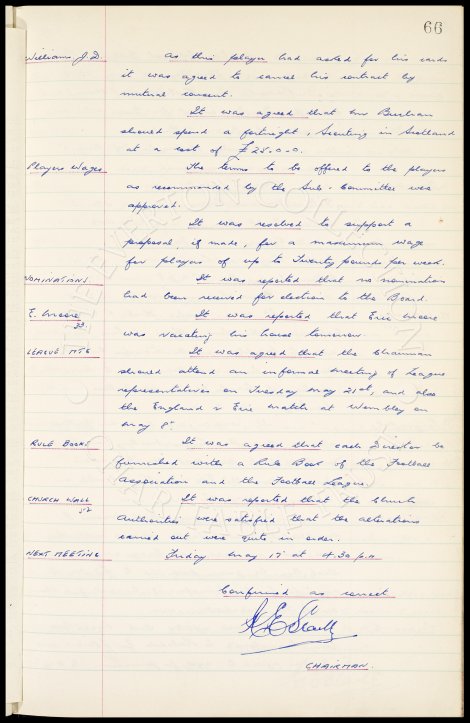 66
Williams J.D. As this player had asked for his cards
it was agreed to cancel his contract by
mutual consent.
It was agreed that Mr Buchan
should spend a fortnight, Scouting in Scotland
at a cost of £25.0.0.
Players Wages The terms to be offered to the players
as recommended by the Sub-Committee were
approved.
It was resolved to support a
proposal, if made, for a maximum wage
for players of up to Twenty pounds per week.
NOMINATIONS It was reported that no nomination
had been received for election to the Board.
E. Moore It was reported that Eric Moore
was vacating his house tomorrow
LEAGUE MTG It was agreed that the Chairman
should attend an informal meeting of League
representatives on Tuesday May 21st, and also
the England v Eire match at Wembley on
May 8th
RULE BOOKS It was agreed that each Director be
furnished with a Rule Book of the Football
Association and the Football League.
CHURCH WALL It was reported that the Church
Authorities were satisfied that the alterations
carried out were quite in order.
NEXT MEETING Friday May 17th at 4.30 p.m
Confirmed as correct
CHAIRMAN.
THE EVERTON COLLECTION
CHARITABLE TRUST